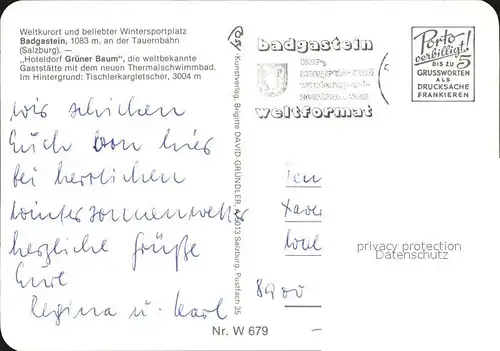 Weltkurort und beliebter Wintersportplatz
Badgastein, 1083 m, an der Tauernbahn
(Salzburg). —
„Hoteldorf Grüner Baum", die weltbekannte
Gaststätte mit dem neuen Thermalschwimmbad.
Im Hintergrund: Tischlerkargletscher, 3004 m
wir schicken
Euch von hier
bei herrlichen
Wintersonnenwetter
herzliche Grüße
Eure
Regina u. Karl
Kunstverlag, Brigitte DAVID-GRÜNDLER, 5013 Salzburg, Postfach 35
badgastein
kur-,
kongress- und
wintersport-
zentrum von
weltformat
Porto
verbilligt!
BIS ZU 5
GRUSSWORTEN
ALS
DRUCKSACHE
FRANKIEREN
Xaver
8900
privacy protection
Datenschutz
Nr. W 679